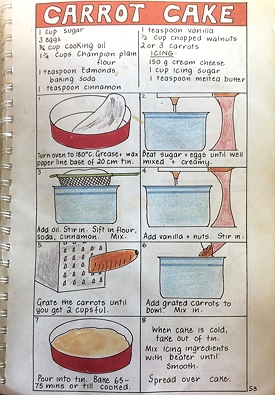 CARROT CAKE
1 cup sugar
3 eggs
¾ cup cooking oil
1¼ cups Champion plain
flour
1 teaspoon Edmonds
baking soda
1 teaspoon cinnamon
1 teaspoon vanilla
½ cup chopped walnuts
2 or 3 carrots
ICING:
150 g cream cheese
1 cup icing sugar
1 teaspoon melted butter
1
Turn oven to 180°C. Grease + wax
paper line base of 20 cm tin.
2
Beat sugar + eggs until well
mixed + creamy.
3
Add oil. Stir in. Sift in flour,
soda, cinnamon. Mix.
4
Add vanilla + nuts. Stir in.
5
Grate the carrots until
you get 2 cupsful.
6
Add grated carrots to
bowl. Mix in.
7
Pour into tin. Bake 65-
75 mins or till cooked.
8
When cake is cold,
take out of tin.
Mix icing ingredients
with beater until
smooth.
Spread over cake.
53